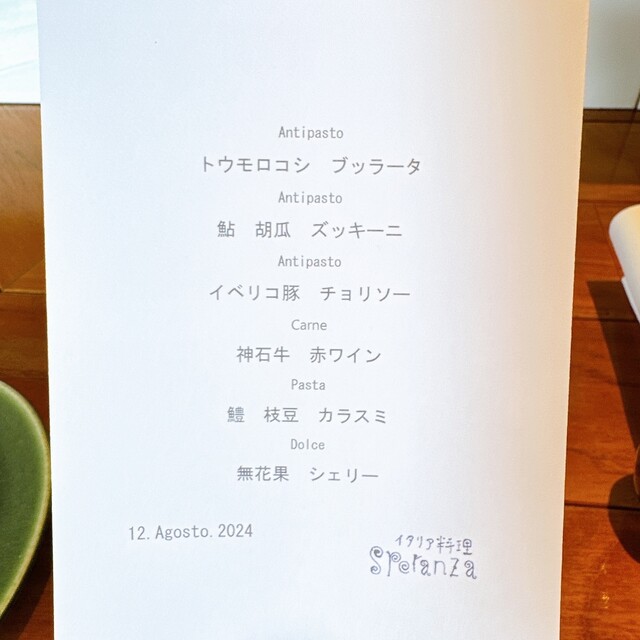 Antipasto
トウモロコシ　ブッラータ
Antipasto
鮎　胡瓜　ズッキーニ
Antipasto
イベリコ豚　チョリソー
Carne
神石牛　赤ワイン
Pasta
鱧　枝豆　カラスミ
Dolce
無花果　シェリー
12.Agosto.2024
イタリア料理
Speranza